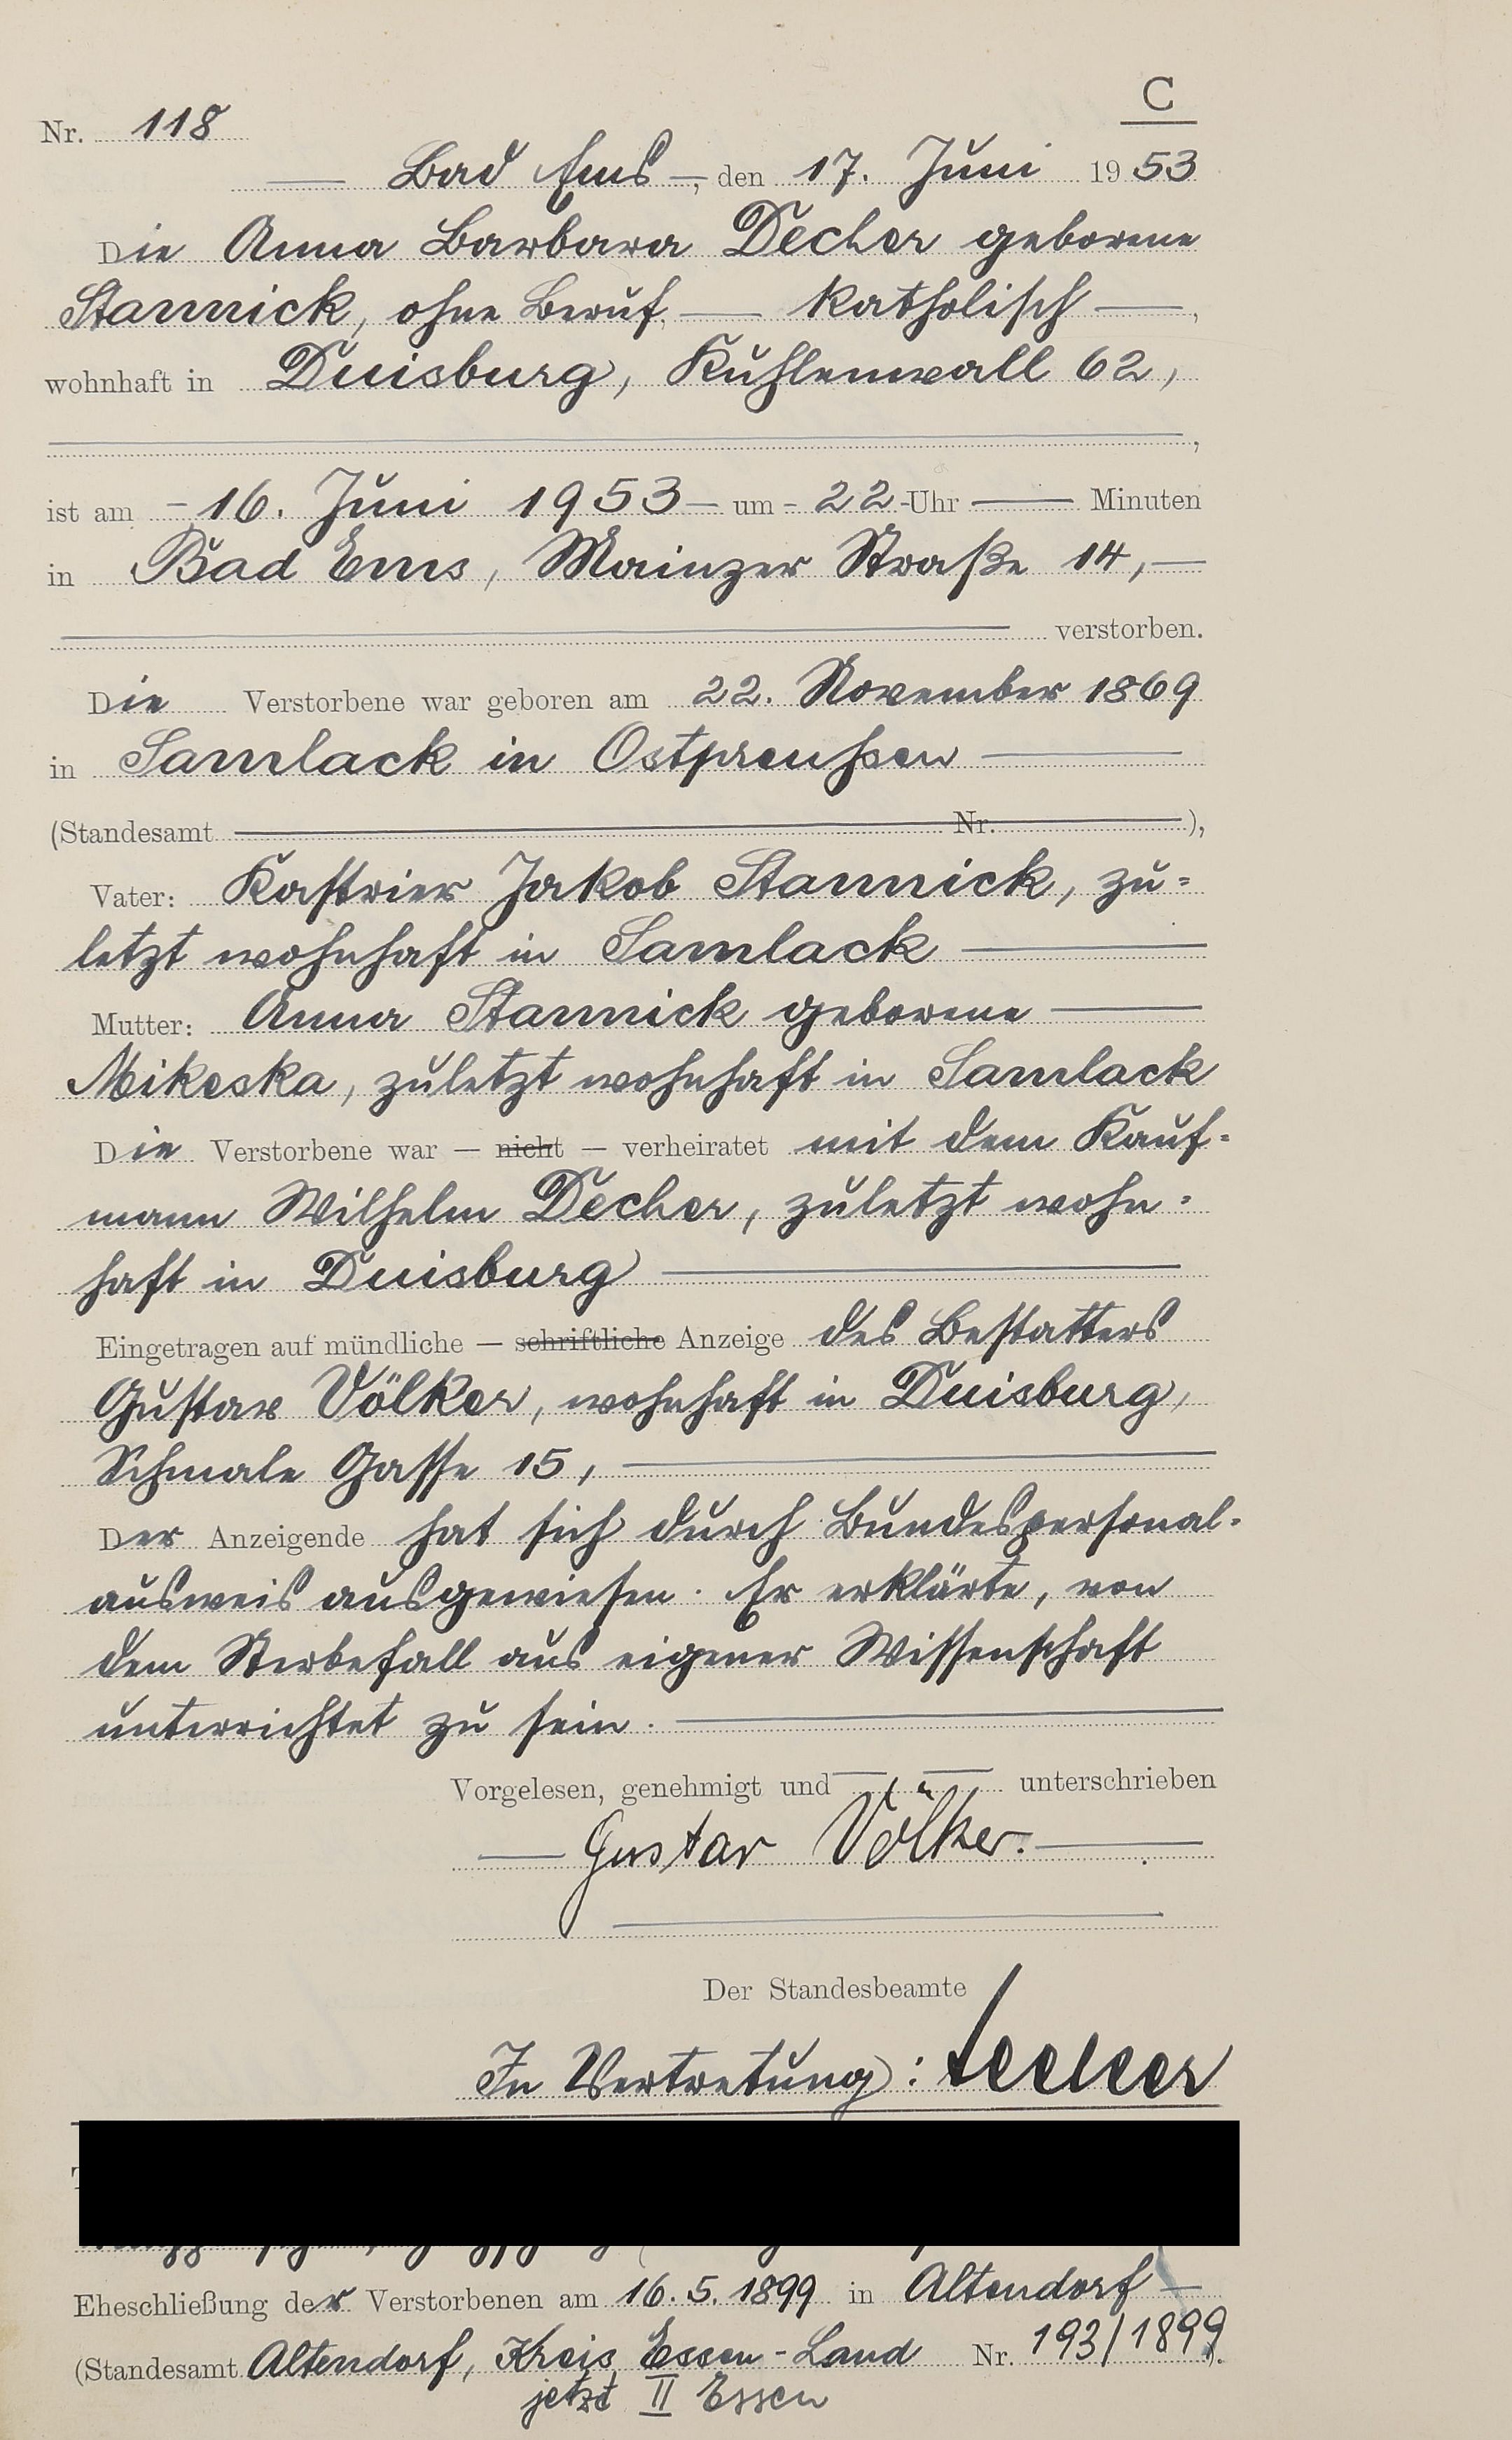 C
Nr. 118
Bad Ems, den 17. Juni 1953
Die Anna Barbara Decher geborene
Stannick, ohne Beruf, — katholisch —,
wohnhaft in Duisburg, Kuhlenwall 62,
ist am - 16. Juni 1953 - um - 22 - Uhr — Minuten
in Bad Ems, Mainzer Straße 14, —
verstorben.
Die Verstorbene war geboren am 22. November 1869
in Samlack in Ostpreußen —
(Standesamt — Nr. —),
Vater: Jakob Stannick, zu=
letzt wohnhaft in Samlack —
Mutter: Anna Stannick geborene —
Mikeska, zuletzt wohnhaft in Samlack
Die Verstorbene war — nicht — verheiratet mit dem Kauf=
mann Wilhelm Decher, zuletzt wohn=
haft in Duisburg —
Eingetragen auf mündliche — schriftliche Anzeige des Bestatters
Gustav Völker, wohnhaft in Duisburg,
Schmale Gasse 15, —
Der Anzeigende hat sich durch Bundespersonal-
ausweis ausgewiesen. Er erklärte, von
dem Sterbefall aus eigener Wissenschaft
unterrichtet zu sein. —
Vorgelesen, genehmigt und — — unterschrieben
— Gustav Völker. —
Der Standesbeamte
In Vertretung:
Eheschließung der Verstorbenen am 16.5.1899 in Altendorf —
(Standesamt Altendorf, Kreis Essen-Land Nr. 193/1899).
jetzt II Essen